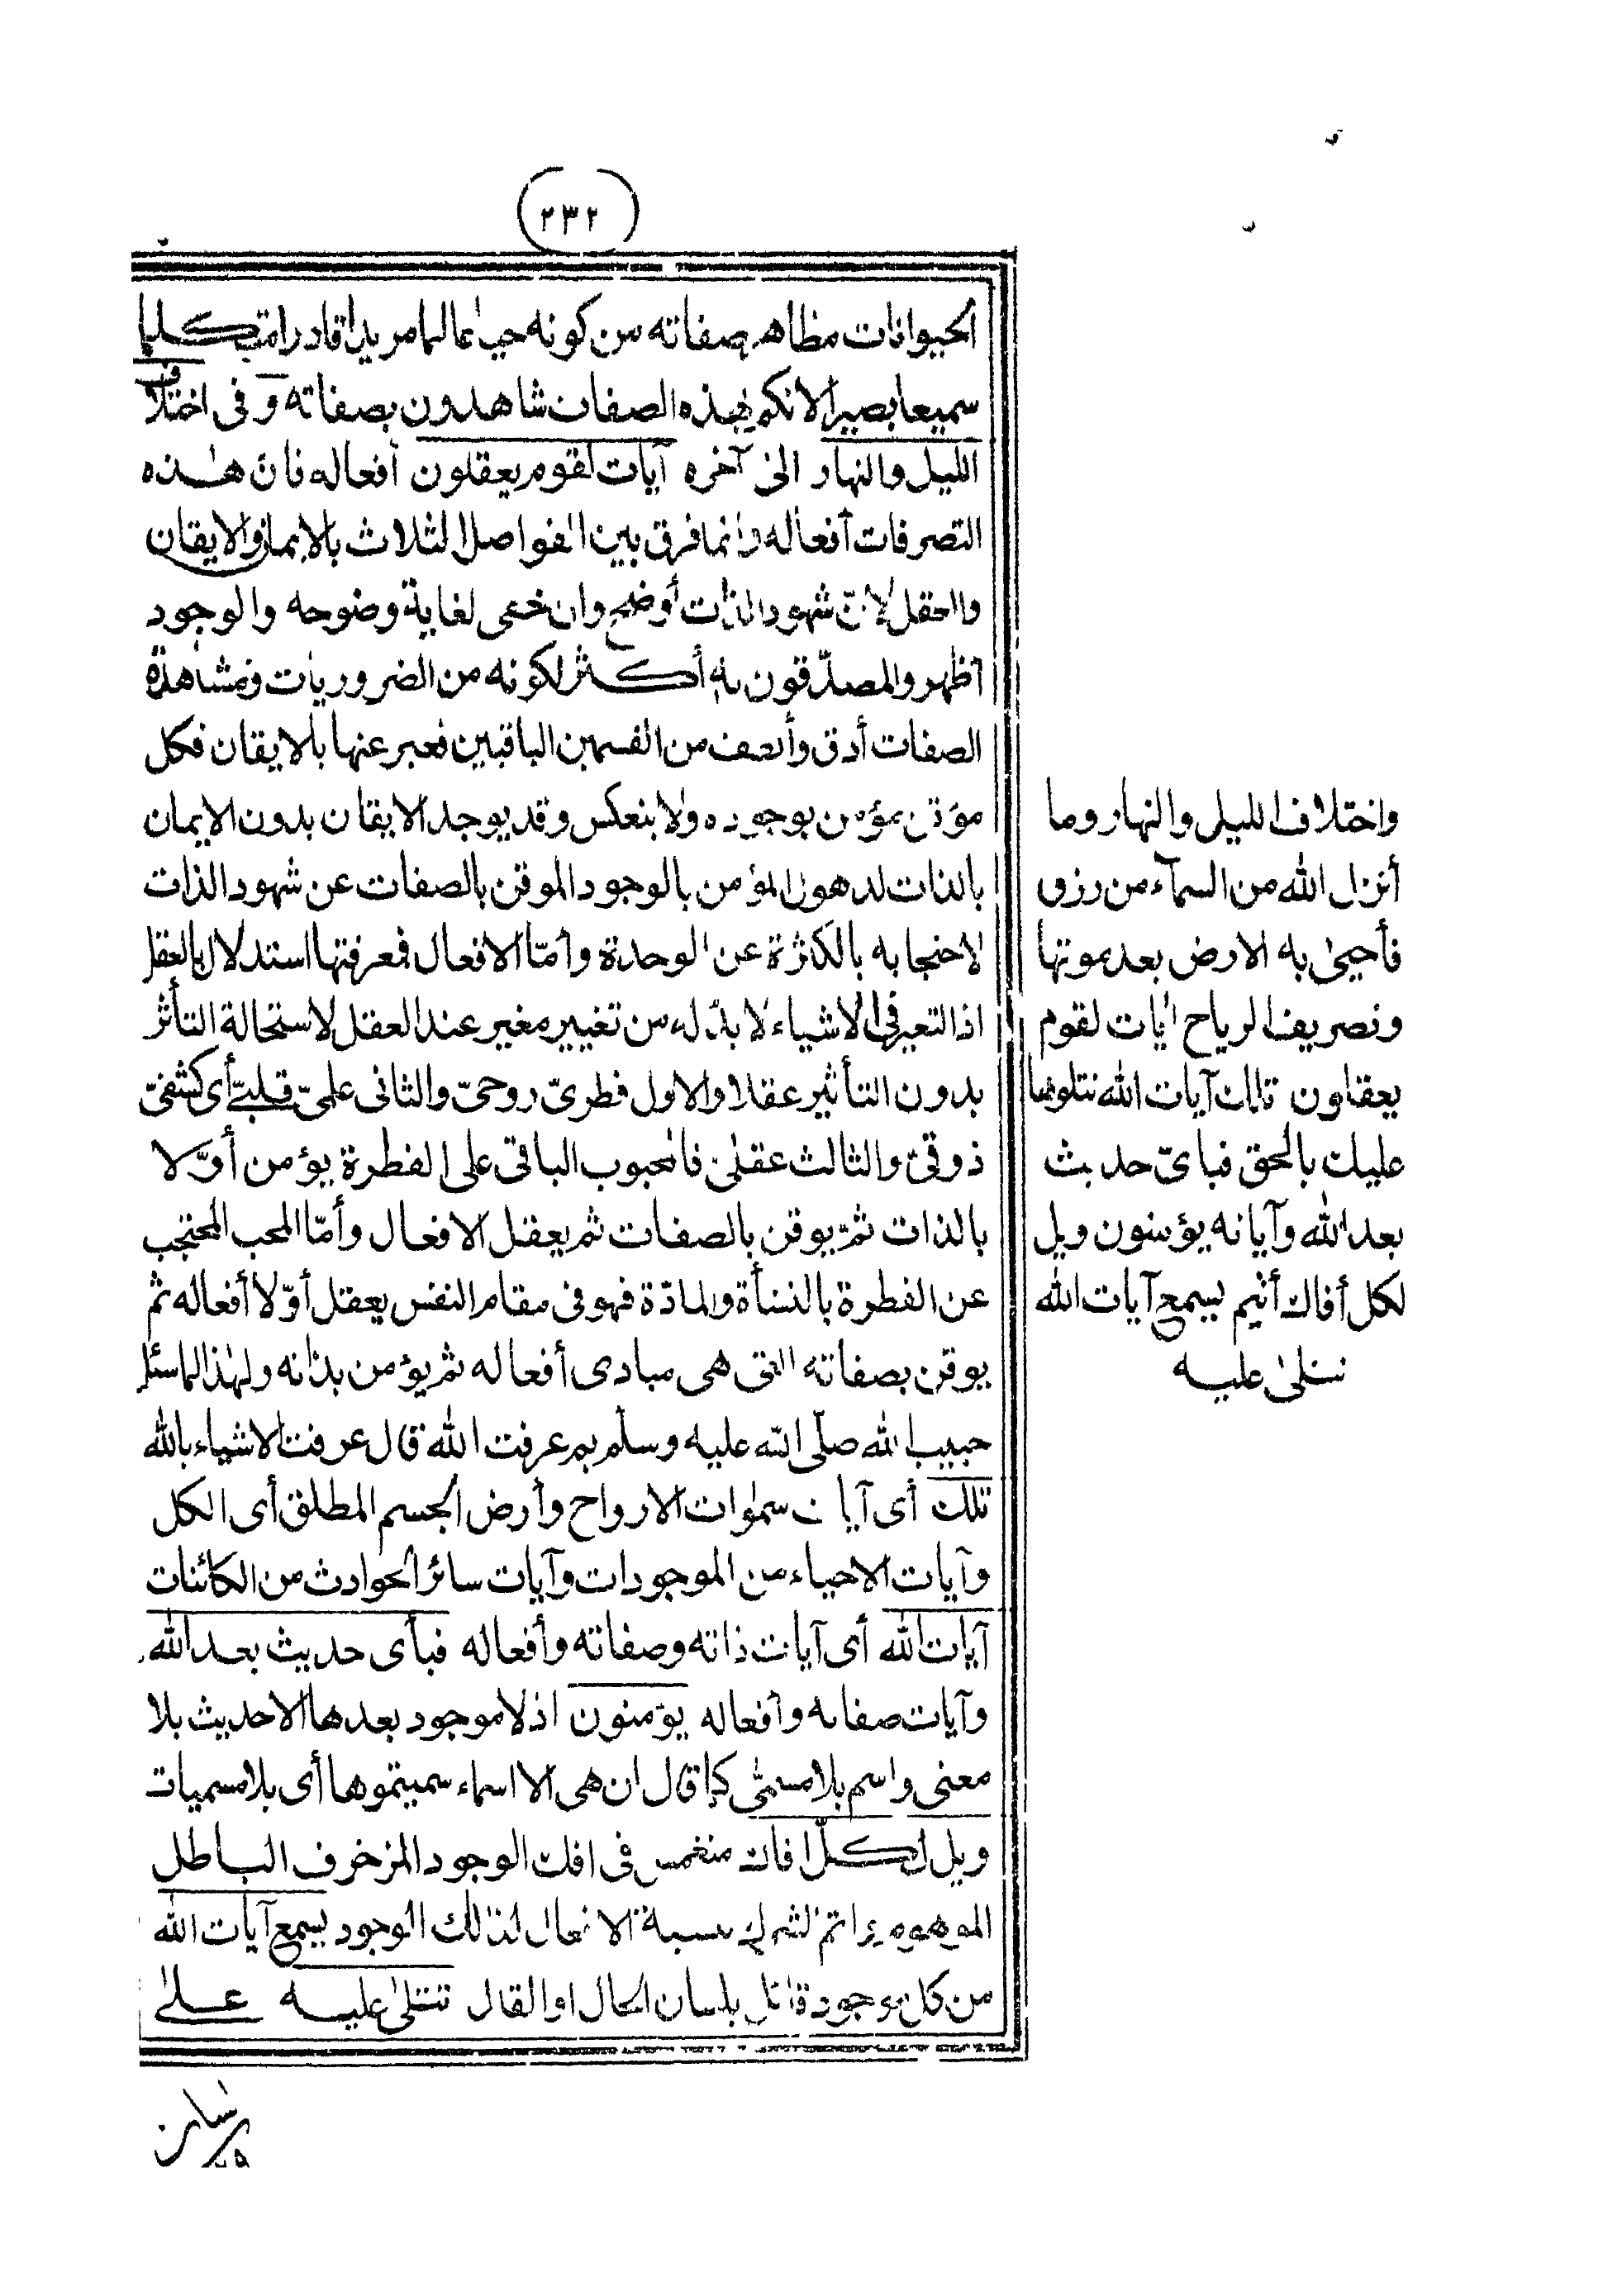 (٢٣٢)
الحيوانات مظاهر صفاته من كونه حيا عالما مريدا قادرا متكلما
سميعا بصيرا لانكم بهذه الصفات شاهدون بصفاته وفى اختلاف
الليل والنهار الى آخره آيات لقوم يعقلون أفعاله فان هذه
التصرفات أفعاله وانما فرق بين الفواصل الثلاث بالايمان والايقان
والعقل لانّ شهود الذات أوضح وان خفى لغاية وضوحه والوجود
أظهر والمصدّقون به أكثر لكونه من الضروريات ومشاهدة
الصفات أدق وألطف من القسمين الباقيين فعبر عنها بالايقان فكل
موقن مؤمن بوجوده ولا ينعكس وقد يوجد الايقان بدون الايمان
بالذات لذهول المؤمن بالوجود الموقن بالصفات عن شهود الذات
لاحتجابه بالكثرة عن الوحدة وأمّا الافعال فمعرفتها استدلال بالعقل
اذ التغير فى الاشياء لا بدّ له من تغيير مغير عند العقل لاستحالة التأثر
بدون التأثير عقلا والاول فطرىّ روحىّ والثانى علمىّ قلبىّ أى كشفىّ
ذوقىّ والثالث عقلىّ فالمحبوب الباقى على الفطرة يؤمن أوّلا
بالذات ثمّ يوقن بالصفات ثم يعقل الافعال وأمّا المحب المحتجب
عن الفطرة بالنشأة والمادّة فهو فى مقام النفس يعقل أوّلا أفعاله ثم
يوقن بصفاته التى هى مبادى أفعاله ثم يؤمن بذاته ولهذا لما سئل
حبيب الله صلّى الله عليه وسلم بم عرفت الله قال عرفت الاشياء بالله
تلك أى آيات سموات الارواح وأرض الجسم المطلق أى الكل
وآيات الاحياء من الموجودات وآيات سائر الحوادث من الكائنات
آيات الله أى آيات ذاته وصفاته وأفعاله فبأى حديث بعد الله
وآيات صفاته وأفعاله يؤمنون اذ لا موجود بعدها الا حديث بلا
معنى واسم بلا مسمّى كما قال ان هى الا اسماء سميتموها أى بلا مسميات
ويل لكلّ افاك منغمس فى افك الوجود المزخرف الباطل
الموهوم اثم الشرك بنسبة الافعال لذلك الوجود يسمع آيات الله
من كل موجود قائل بلسان الحال او القال تتلى عليه على
واختلاف الليل والنهار وما
أنزل الله من السماء من رزق
فأحيى به الارض بعد موتها
وتصريف الرياح ايات لقوم
يعقلون تلك آيات الله نتلوها
عليك بالحق فبأىّ حديث
بعد الله وآياته يؤمنون ويل
لكل أفاك أثيم يسمع آيات الله
تتلى عليه